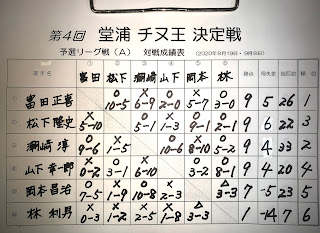 第4回 堂浦 チヌ王 決定戦
予選リーグ戦(A) 対戦成績表 (2020年8月19日・9月8日)
選手名 富田 松下 瀬崎 山下 岡本 林 勝点 得失差 総匹数 順位
① 富田正喜 ○10-5 ×6-9 ○2-0 ×5-7 ○3-0 9 5 26 1
② 松下隆史 ×5-10 ○5-1 ×1-3 ○9-1 ○2-1 9 6 22 3
③ 瀬崎淳 ○9-6 ×1-5 ○10-6 ×8-10 ○5-2 9 4 33 2
④ 山下幸一郎 ×0-2 ○3-1 ×6-10 ○3-2 ○8-1 9 4 20 4
⑤ 岡本昌治 ○7-5 ×1-9 ○10-8 ×2-3 △3-3 7 -5 23 5
⑥ 林利男 ×0-3 ×1-2 ×2-5 ×1-8 △3-3 1 -14 7 6